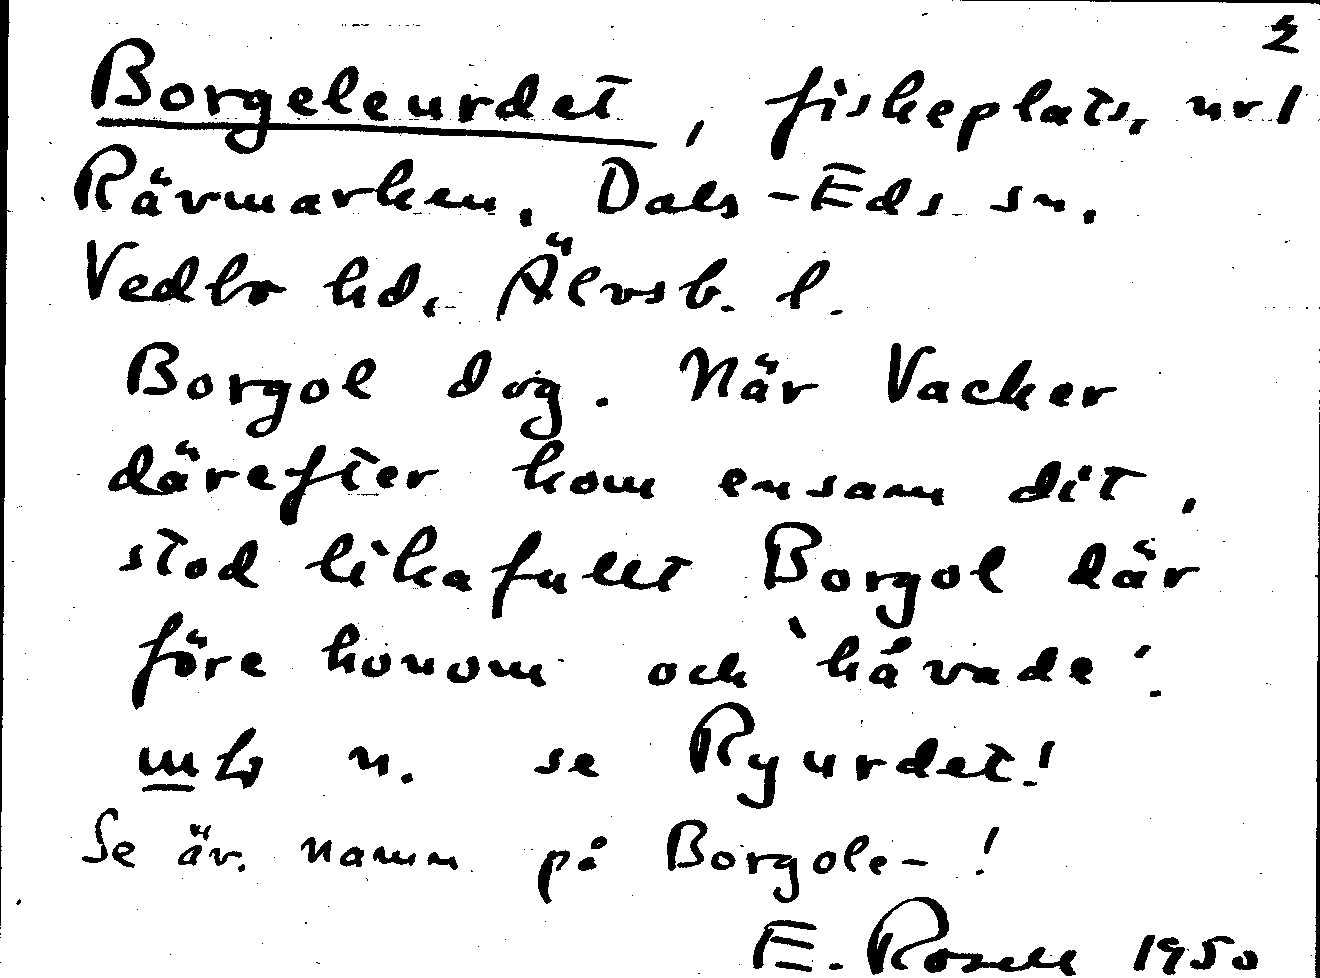 2
Borgeleurdet, fiskeplats, nr 1
Rävmarken, Dals-Eds sn,
Vedbo hd, Älvsb. l.
Borgol dog. När Vacker
därefter kom ensam dit,
stod likafullt Borgol där
före honom och 'håvade'.
mb n. se Ryurdet!
Se äv. namn på Borgole- !
E. Rosell 1950